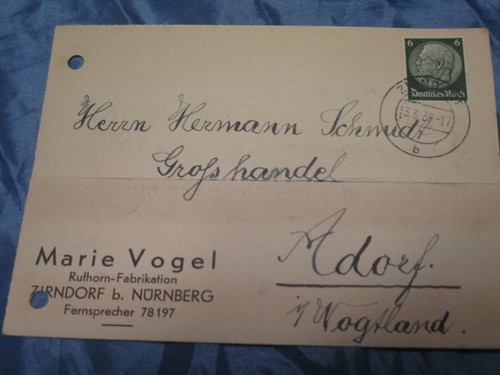 6 6
Deutsches Reich
b
Herrn Hermann Schmidt
Großhandel
Adorf.
i/Vogtland.
Marie Vogel
Rufhorn-Fabrikation
ZIRNDORF b. NÜRNBERG
Fernsprecher 78197